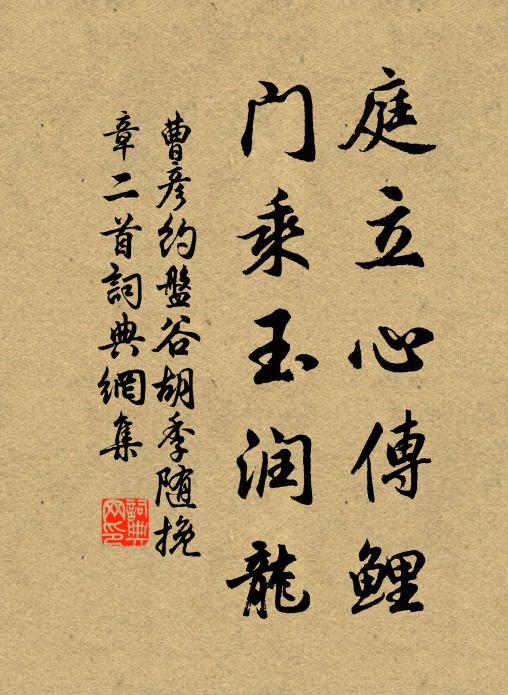 庭立心傳鯉
門乘玉润龍
曹彥約盤谷胡季随挽
章二首詞典網集
詞典
网印